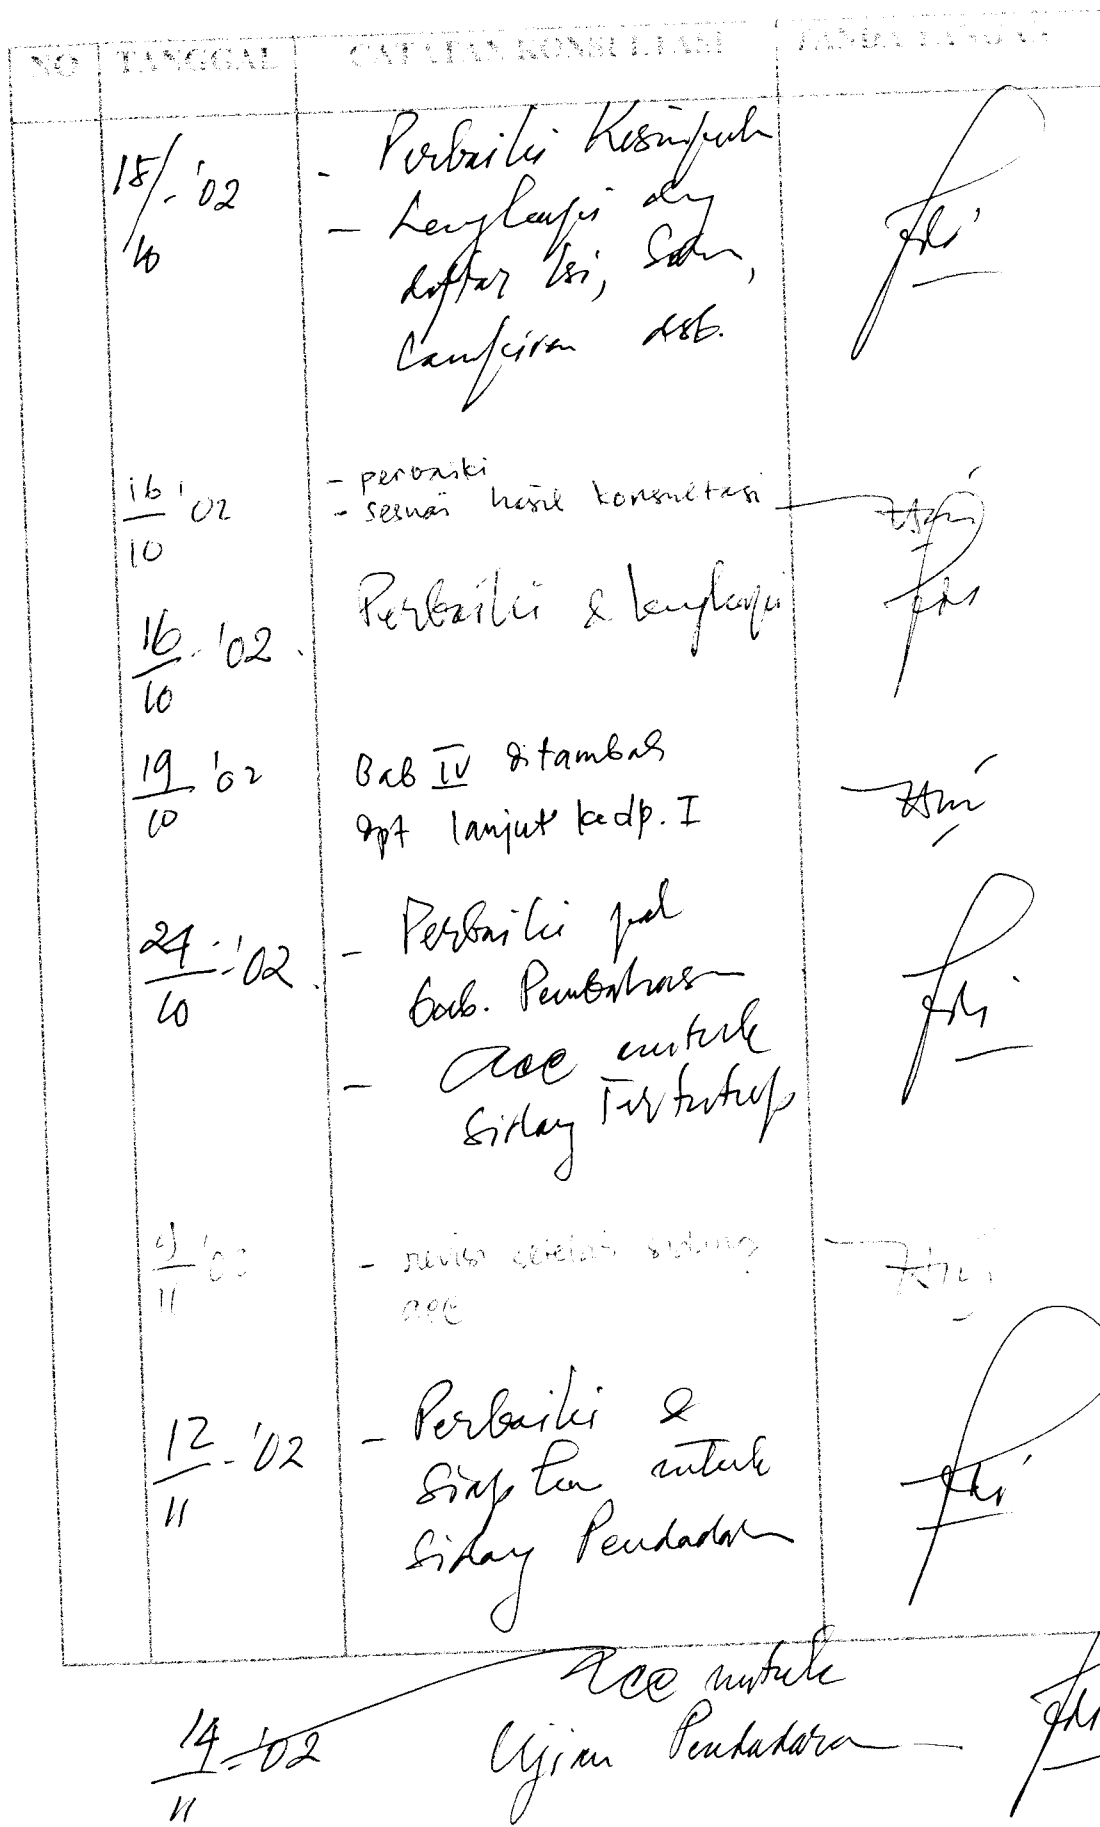 NO TANGGAL CATATAN KONSULTASI TANDA TANGAN
15/10 - '02 - Perbaiki Kesimpulan
- Lengkapi dng
daftar Isi,
Lampiran dsb.
16/10 '02 - perbaiki
- sesuai hasil konsultasi
16/10 - '02 Perbaiki & lengkapi
19/10 '02 Bab IV ditambah
dpt lanjut ke dp. I
24/10 - '02 - Perbaiki pd
bab. Pembahasan
- acc untuk
Sidang Tertutup
11 - revisi setelah sidang
acc
12/11 - '02 - Perbaiki &
Siapkan untuk
Sidang Pendadaran
acc untuk
14/11 - '02 Ujian Pendadaran